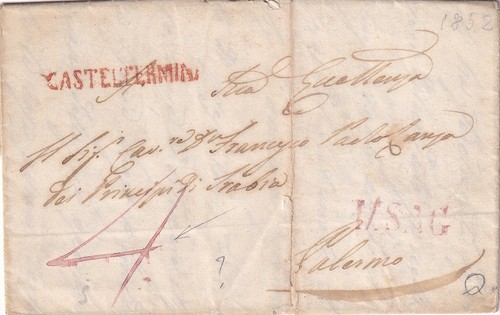 1852
CASTELTERMINI
A Sua Eccellenza
Il Sig.r Cav.re D. Francesco Paolo Lanza
dei Principi di Trabia
4
V.S.AG
?
Palermo